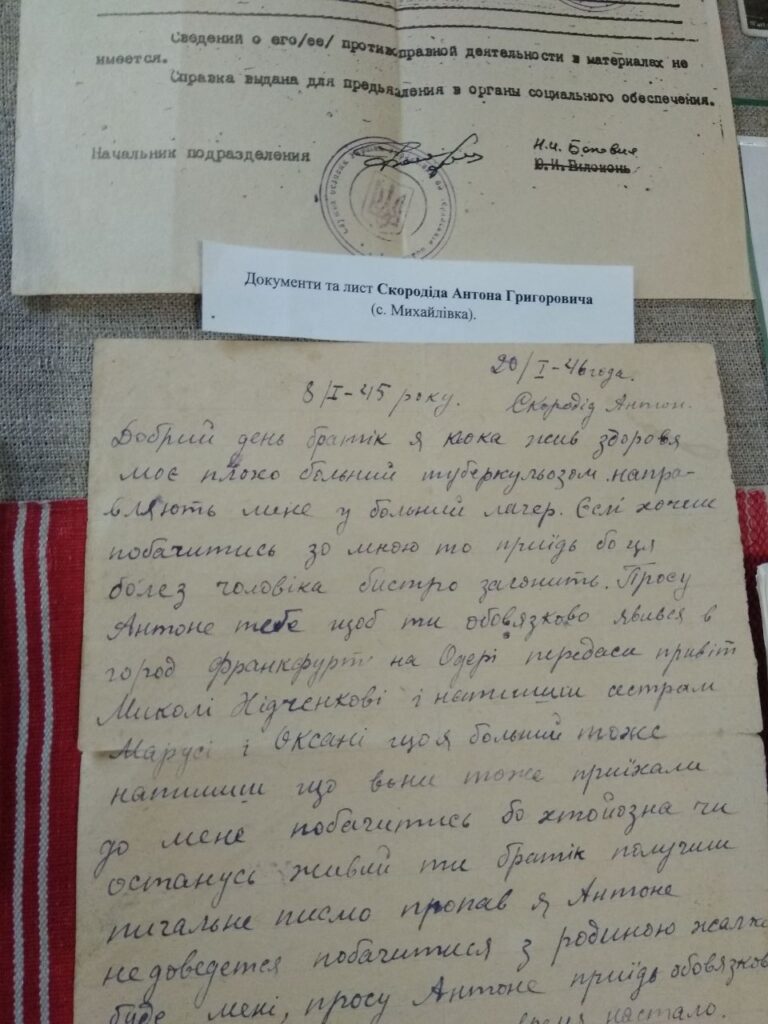 Сведений о его/ее/ противоправной деятельности в материалах не
имеется.
Справка выдана для предъявления в органы социального обеспечения.
Начальник подразделения
Н.И.
Ю.И.Билоконь
Документи та лист Скородіда Антона Григоровича
(с. Михайлівка).
20/I-46 года.
8/I-45 року. Скородід Антон.
Добрий день братік я жив здоровя
моє плохо больний туберкульозом напра-
вляють мене у больний лагер. Єслі хочеш
побачитись зо мною то приїдь бо ця
болез чоловіка бистро загонить. Просу
Антоне тебе щоб ти обовязково явився в
город Франкфурт на Одері передаси привіт
Миколі Нідченкові і напишиш сестрам
Марусі і Оксані що я больний тоже
напишиш що вони тоже приїхали
до мене побачитись бо хтойозна чи
останусь живий ти братік получиш
пичальне писмо пропав я Антоне
недоведется побачитися з родиною жалко
буде мені, просу Антоне приїдь обовязков
время настало.